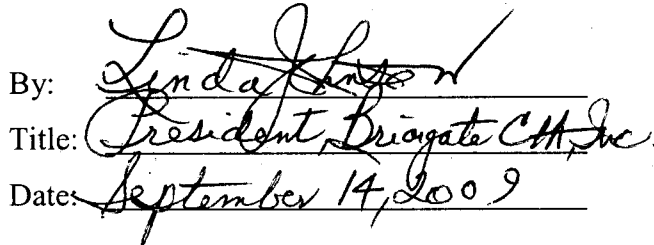 By: Linda Johnson
Title: President, Briargate CHA, Inc.
Date: September 14, 2009